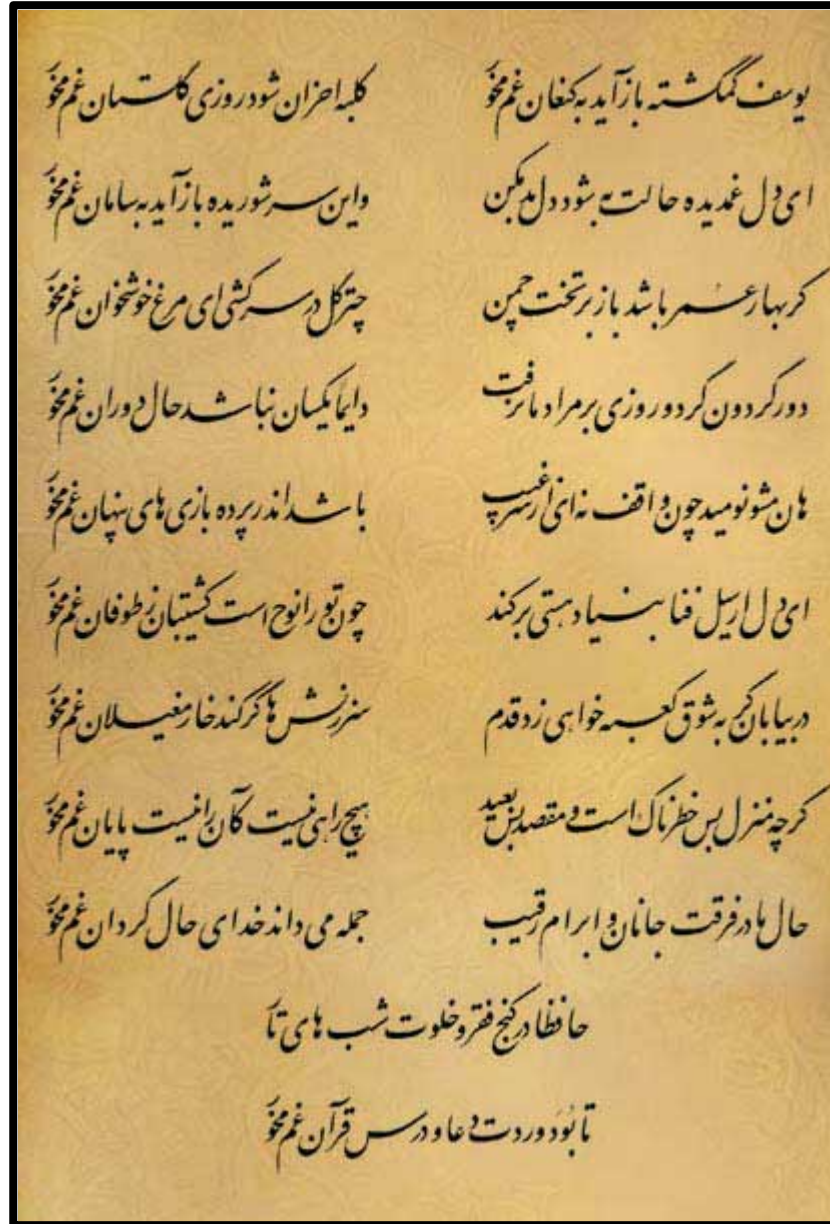 یوسف گمگشته بازآید به کنعان غم مخور
کلبه احزان شود روزی گلستان غم مخور
ای دل غمدیده حالت به شود دل بد مکن
واین سر شوریده بازآید به سامان غم مخور
گر بهار عمر باشد باز بر تخت چمن
چتر گل در سر کشی ای مرغ خوشخوان غم مخور
دور گردون گر دو روزی بر مراد ما نرفت
دایما یکسان نباشد حال دوران غم مخور
هان مشو نومید چون واقف نه ای از سر غیب
باشد اندر پرده بازی های پنهان غم مخور
ای دل ار سیل فنا بنیاد هستی برکند
چون تو را نوح است کشتیبان ز طوفان غم مخور
در بیابان گر به شوق کعبه خواهی زد قدم
سرزنش ها گر کند خار مغیلان غم مخور
گرچه منزل بس خطرناک است و مقصد بس بعید
هیچ راهی نیست کآن را نیست پایان غم مخور
حال ما در فرقت جانان و ابرام رقیب
جمله می داند خدای حال گردان غم مخور
حافظا در کنج فقر و خلوت شب های تار
تا بُوَد وردت دعا و درس قرآن غم مخور